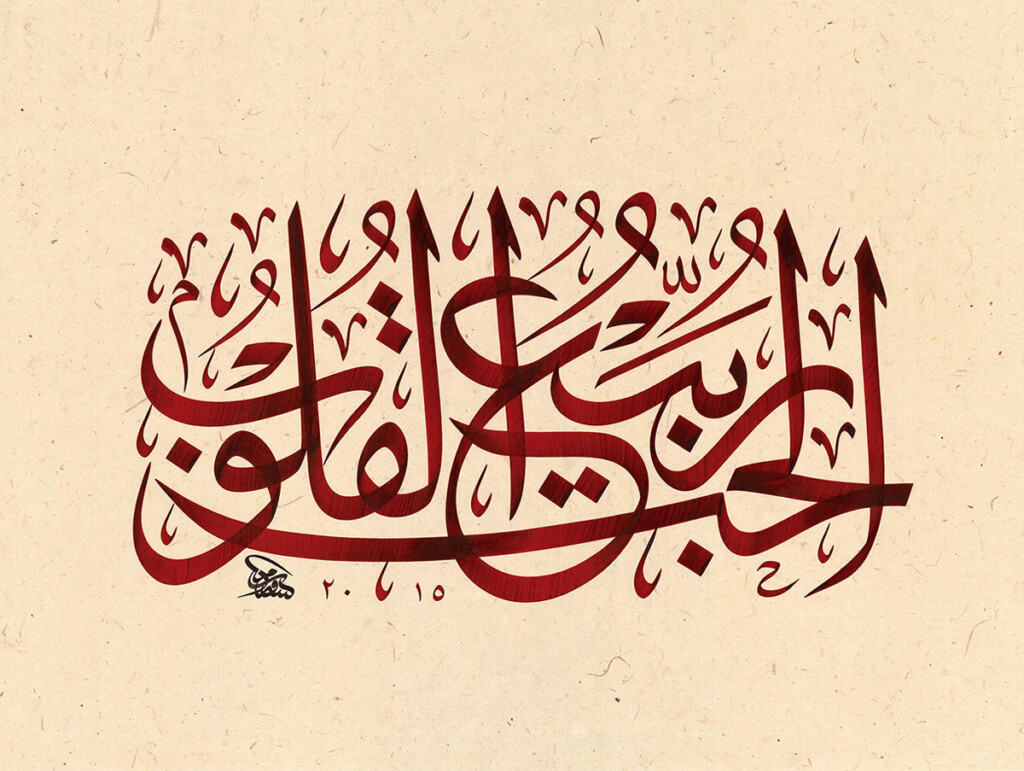 الحب ربيع القلوب
٢٠ ١٥